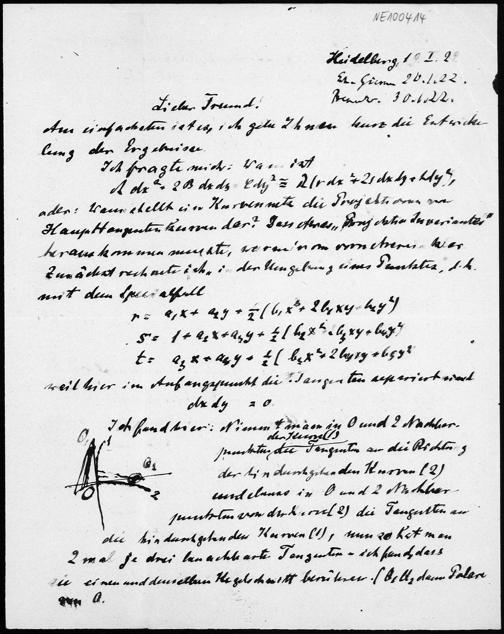 NE100414
Heidelberg 19.I.22
20.1.22.
30.1.22.
Lieber Freund!
Am einfachsten ist es, ich gebe Ihnen kurz die Entwicke-
lung der Ergebnisse
Ich fragte mich: Wann ist
A dx² + 2B dx dy + C dy² = λ(r dx² + 2s dx dy + t dy²),
oder: Wann stellt ein Kurvennetz die Projektionen von
Haupttangentenkurven dar? Dass etwas „Projektiv Invariantes"
herauskommen musste, war
Zunächst rechnete ich in der Umgebung eines Punktes, d.h.
mit dem Spezialfall
r = a₁x + a₂y + ½(b₁x² + 2b₂xy + b₃y²)
s = 1 + a₂x + a₃y + ½(b₂x² + b₃xy + b₄y²)
t = a₃x + a₄y + ½(b₃x² + 2b₄xy + b₅y²
weil hier im Anfangspunkt die Tangenten separiert sind
dx dy = 0
Ich fand hier: Nimmt man in O und 2 Nachbar-
der Kurve (1)
punkten die Tangenten an die Richtung
der hindurchgehenden Kurven (2)
und ebenso in O und 2 Nachbar-
punkten von der Kurve (2) die Tangenten an
O₁ 1
O₂
O 2
die hindurchgehenden Kurven (1), nun so hat man
2 mal je drei benachbarte Tangenten – ich fand, dass
sie einen und denselben Kegelschnitt berühren. (O₁O₂ dann Polare
von O.